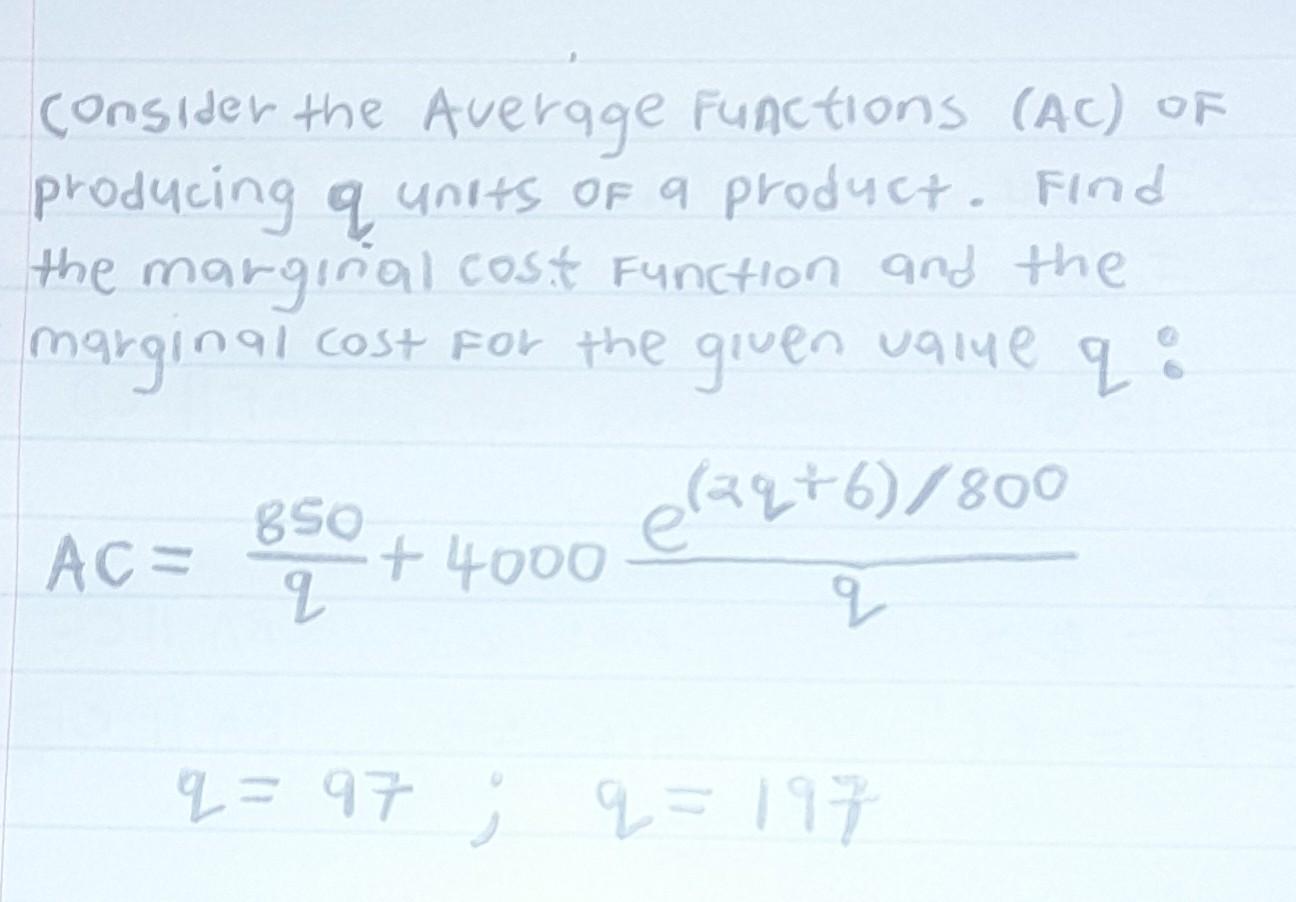 Consider the Average Functions (AC) OF
producing q units OF a product. Find
the marginal cost Function and the
marginal cost For the given value q:
AC = 850/q + 4000 e^(2q+6)/800/q
q = 97 ; q = 197